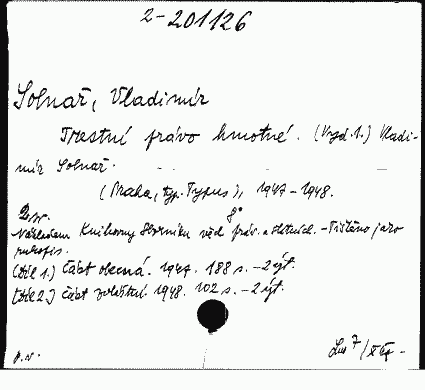 2-201126
Solnař, Vladimír
Trestní právo hmotné. (Vyd. 1.) Vladi-
mír Solnař.
(Praha, typ. Typus), 1947-1948.
8°
Nákladem Knihovny Sborníku věd práv. a státních. - Tištěno jako
rukopis.
(Díl 1.) Část obecná. 1947. 188 s. - 2 výt.
[Díl 2.] Část zvláštní. 1948. 102 s. - 2 výt.